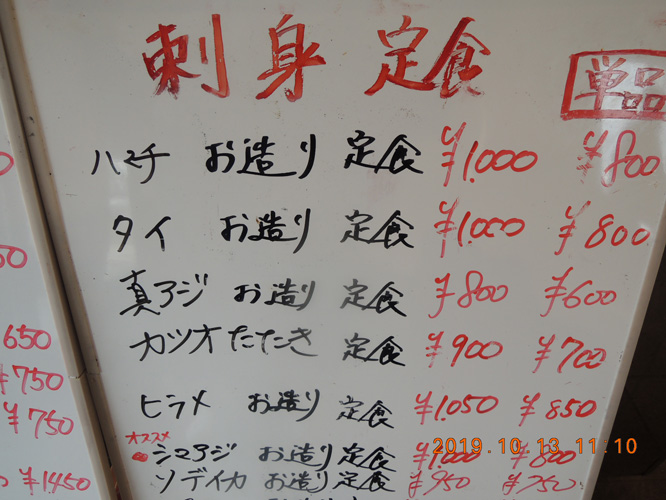 刺身定食 単品
ハマチ お造り 定食 ¥1,000 ¥800
タイ お造り 定食 ¥1,000 ¥800
真アジ お造り 定食 ¥800 ¥600
カツオたたき 定食 ¥900 ¥700
ヒラメ お造り 定食 ¥1,050 ¥850
オススメ
シマアジ お造り 定食 ¥1,000 ¥800
ソデイカ お造り 定食 ¥950 ¥750
650
¥750
¥750
¥1450
2019.10.13 11:10